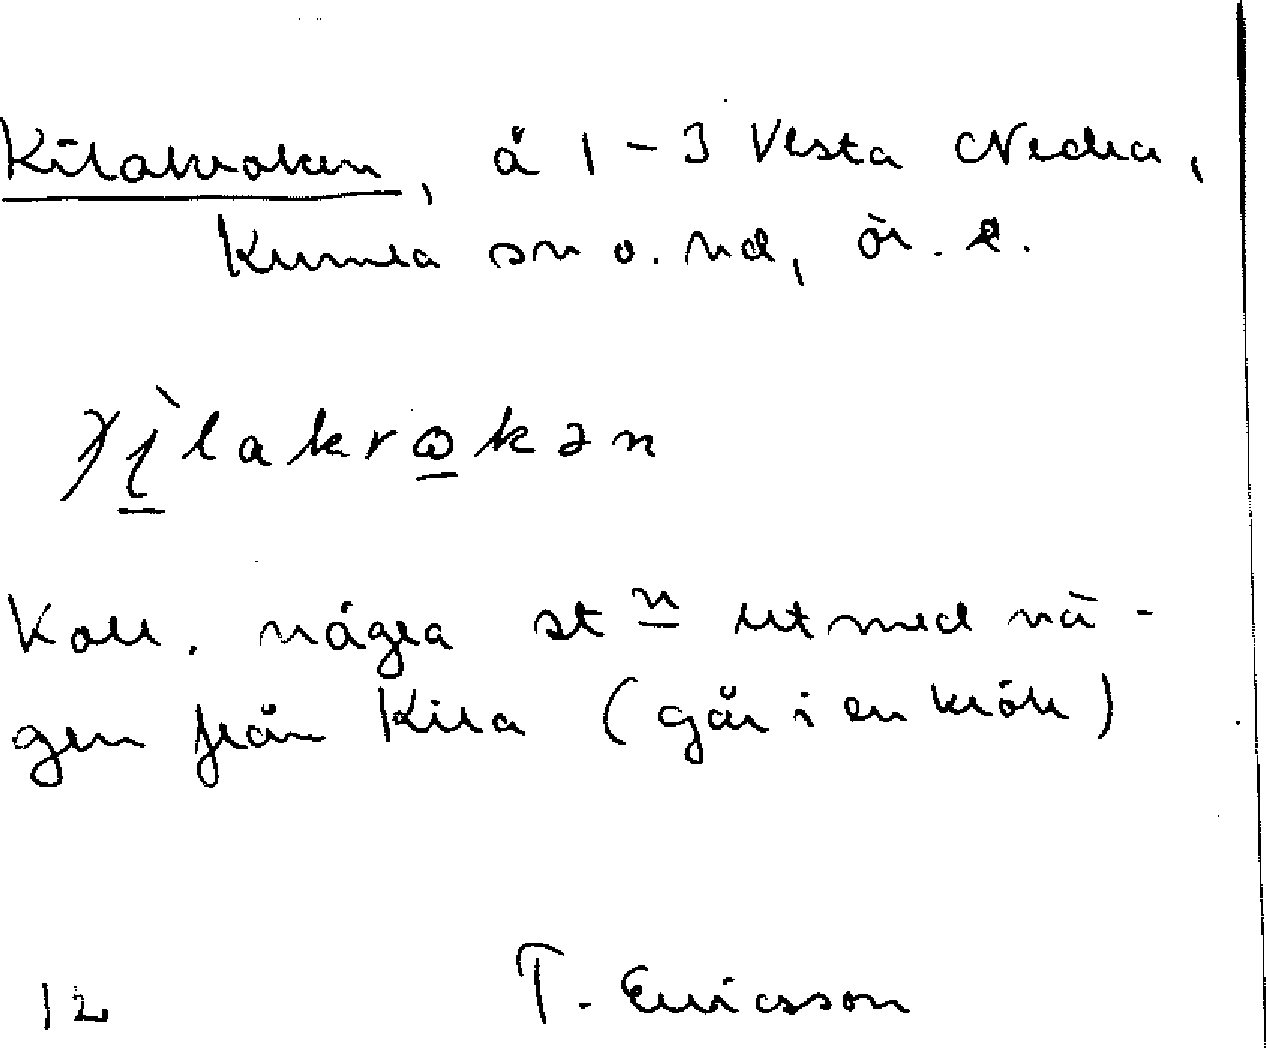 Kilakroken, å 1-3 Vesta Nedra,
Kumla sn o. hd, ör. l.
kola. några st n ut med vä-
gen från Kila (går i en krök)
12 T. Ericsson